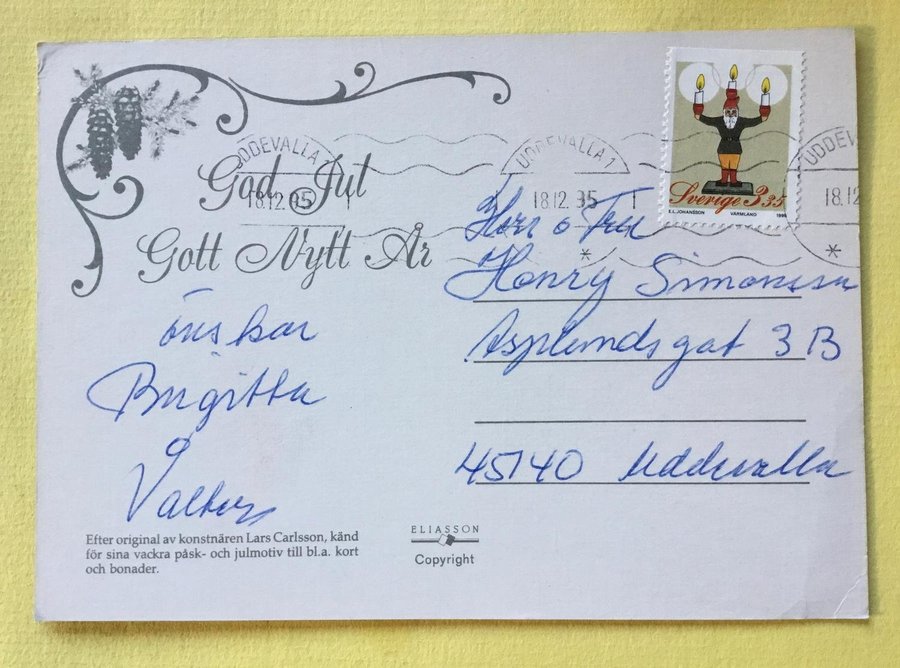 God Jul
Gott Nytt År
önskar
Birgitta
o
Valborg
Efter original av konstnären Lars Carlsson, känd
för sina vackra påsk- och julmotiv till bl.a. kort
och bonader.
ELIASSON
Copyright
UDDEVALLA 1
18.12.95
UDDEVALLA 1
18.12.95
UDDEVALLA
18.12
Sverige 3.35
E.L. JOHANSSON VÄRMLAND
Herr o Fru
Henry Simonsson
Asplundsgat 3 B
45140 Uddevalla